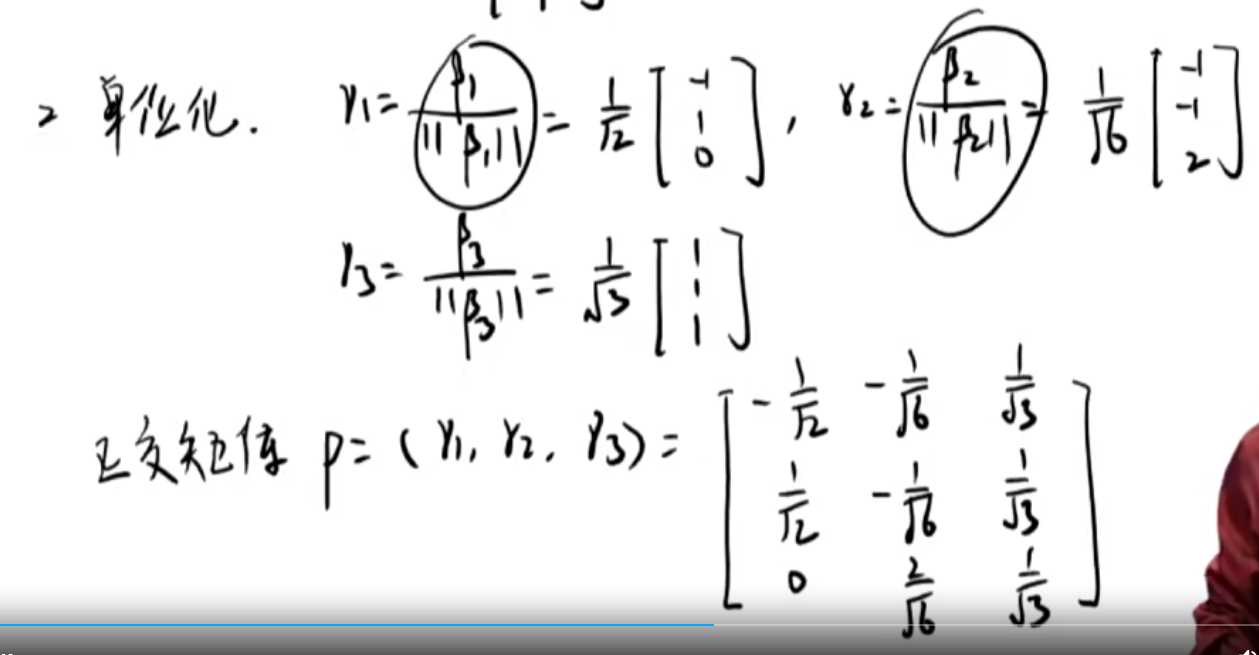 2 单位化. γ₁ = β₁/||β₁|| = 1/√2 [-1 1 0], γ₂ = β₂/||β₂|| = 1/√6 [-1 -1 2]
γ₃ = β₃/||β₃|| = 1/√3 [1 1 1]
正交矩阵 P = (γ₁, γ₂, γ₃) = [-1/√2 -1/√6 1/√3
1/√2 -1/√6 1/√3
0 2/√6 1/√3]